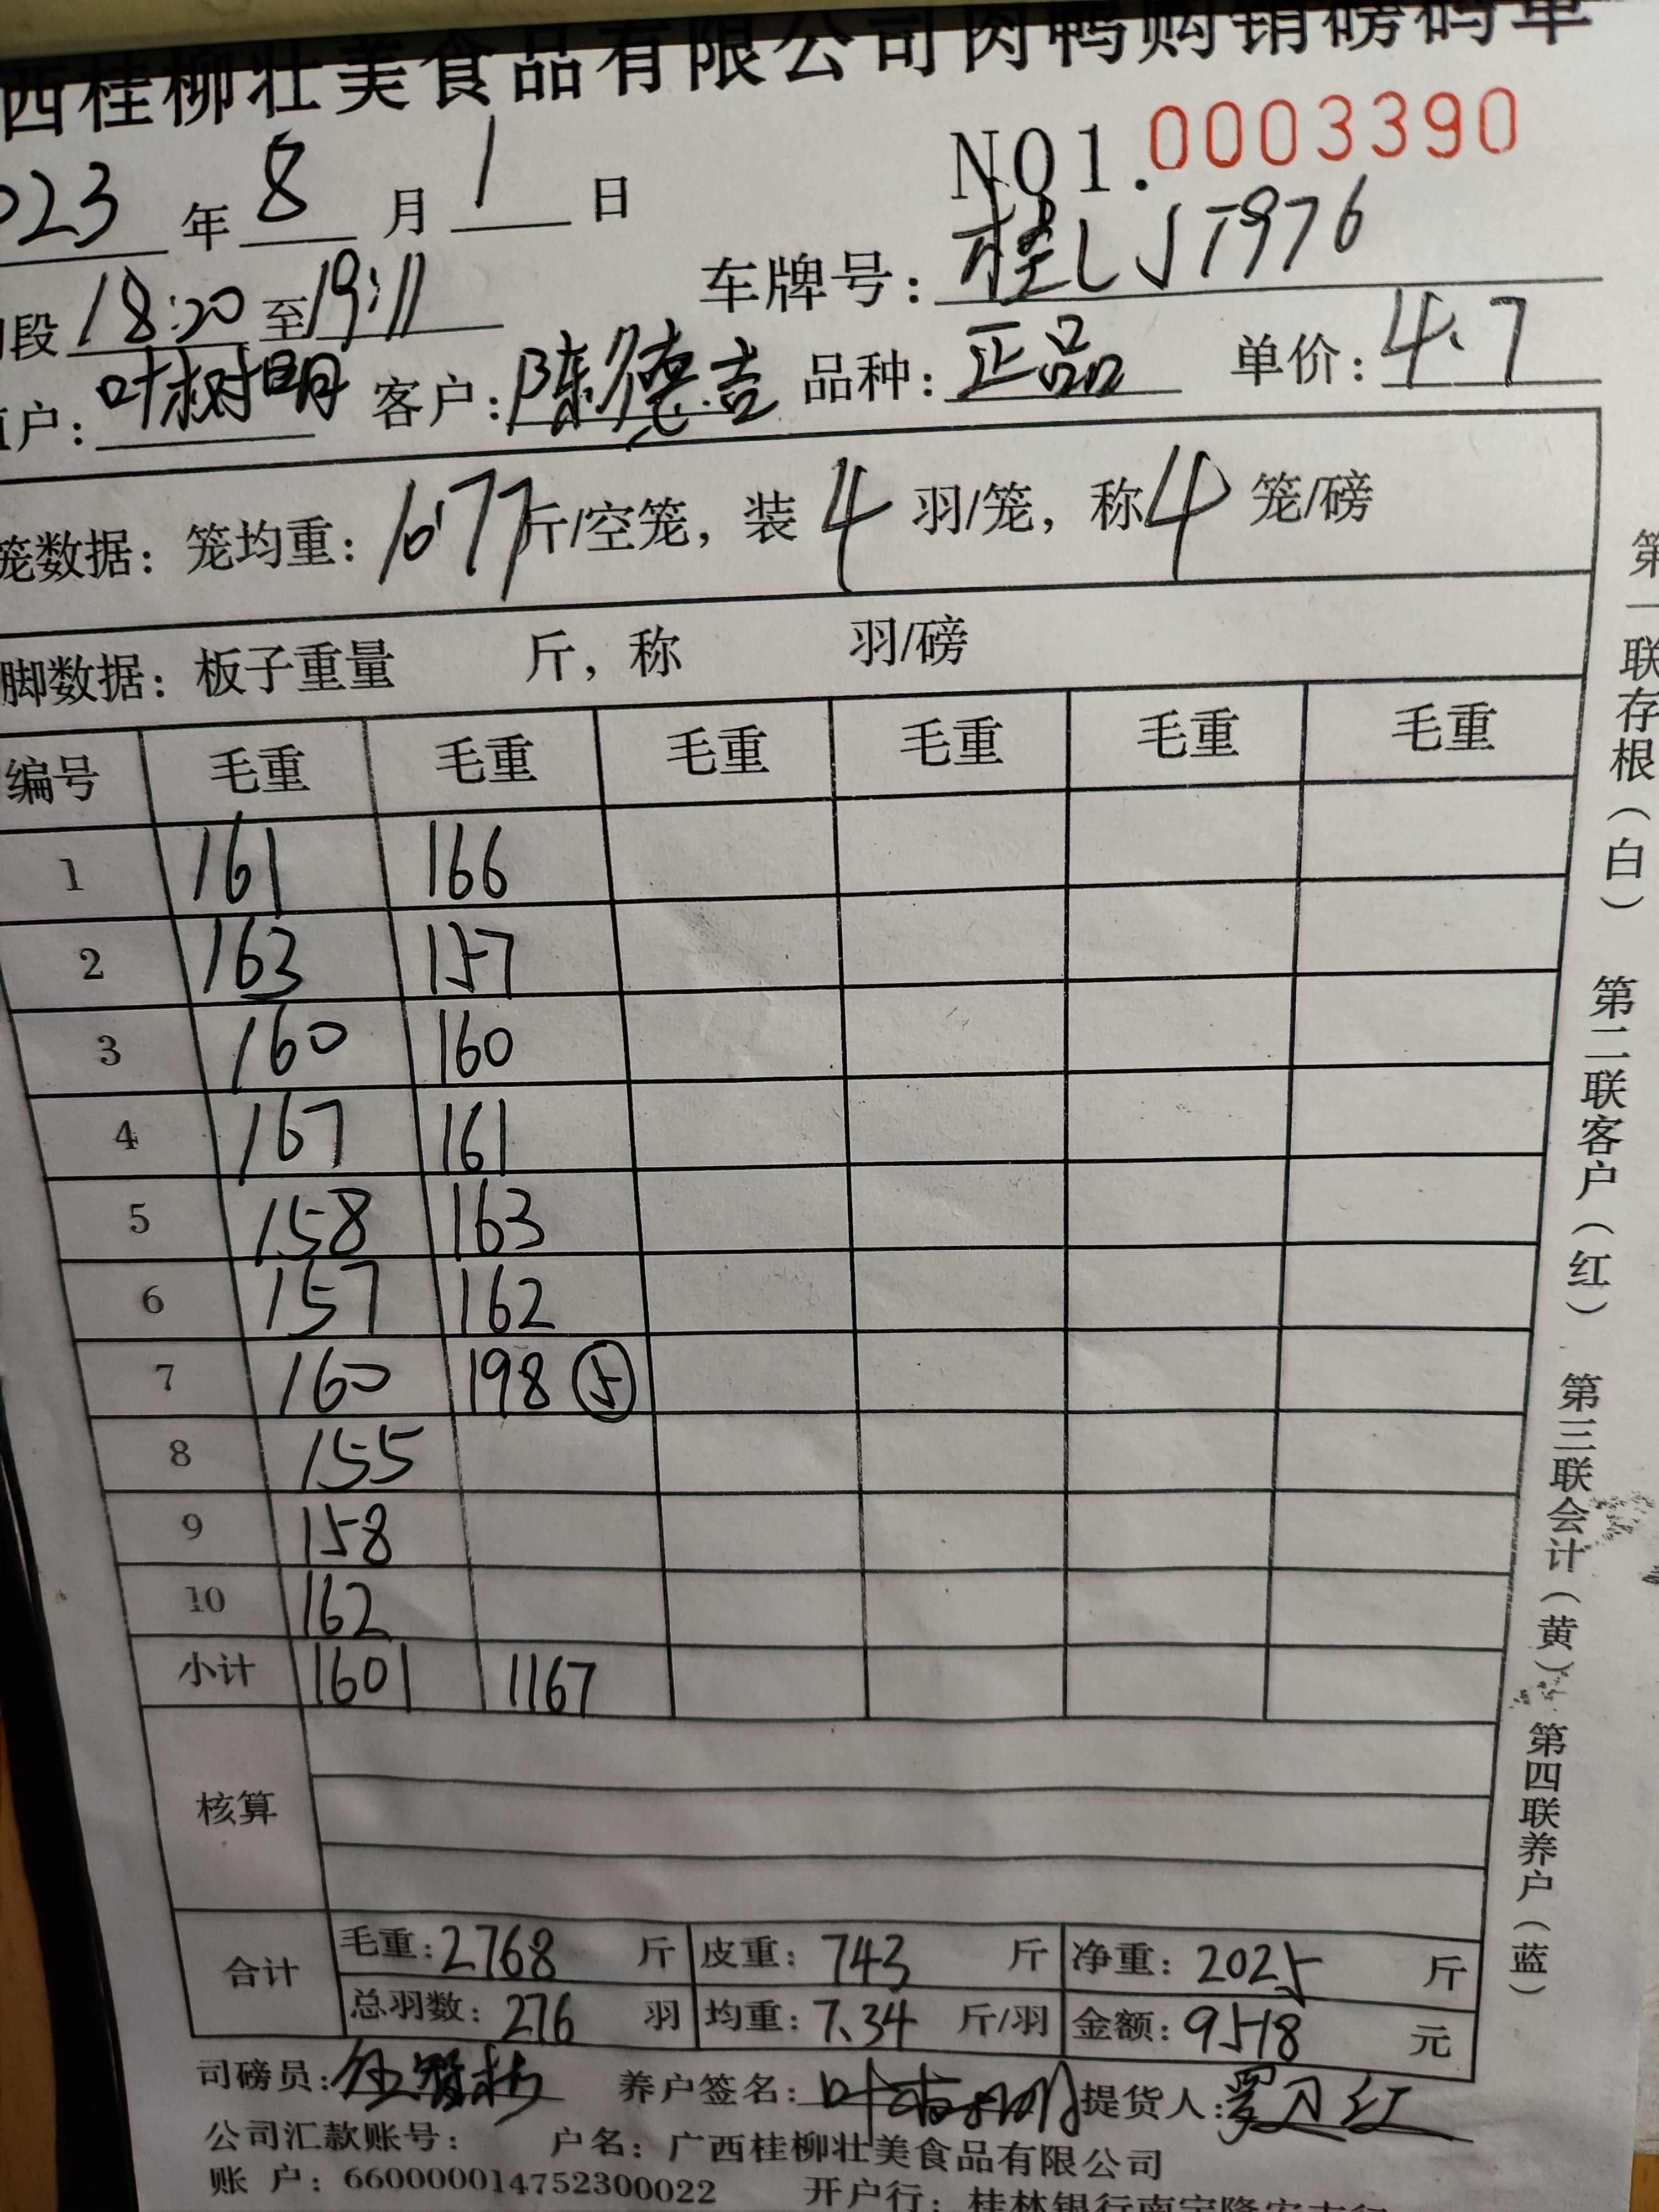 西桂柳壮美食品有限公司肉鸭购销磅码单
NO1.0003390
023 年 8 月 1 日
段 18:20 至 19:11 车牌号: 桂LJT976
户: 叶树明 客户: 陈德吉 品种: 正品 单价: 4.7
笼数据: 笼均重: 10.77 斤/空笼, 装 4 羽/笼, 称 4 笼/磅
脚数据: 板子重量 斤, 称 羽/磅
编号 毛重 毛重 毛重 毛重 毛重 毛重
1 161 166
2 163 157
3 160 160
4 167 161
5 158 163
6 157 162
7 160 198 ⑤
8 155
9 158
10 162
小计 1601 1167
核算
合计 毛重: 2768 斤 皮重: 743 斤 净重: 2025 斤
总羽数: 276 羽 均重: 7.34 斤/羽 金额: 9518 元
司磅员: 养户签名: 叶树明 提货人:
公司汇款账号: 户名: 广西桂柳壮美食品有限公司
账 户: 660000014752300022 开户行: 桂林银行南宁隆安支行
第一联存根(白) 第二联客户(红) 第三联会计(黄) 第四联养户(蓝)